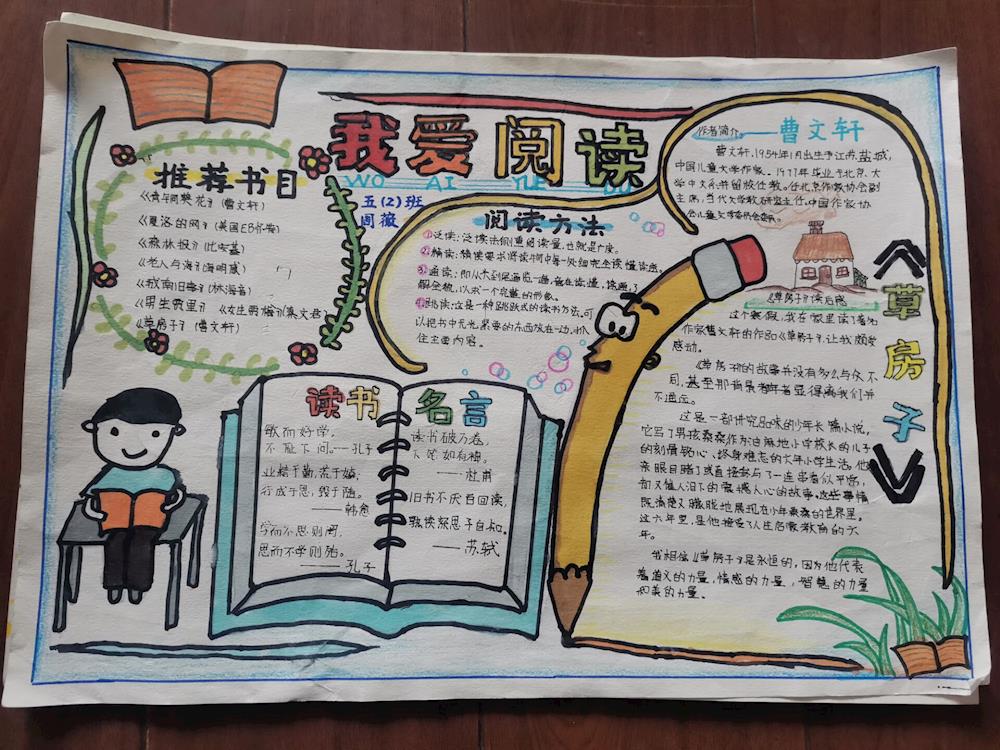 我爱阅读
WO AI YUE DU
五(2)班
周薇
推荐书目
《青铜葵花》(曹文轩)
《夏洛的网》(美国EB怀特)
《森林报》(比安基)
《老人与海》(海明威)
《城南旧事》(林海音)
《男生贾里》《女生贾梅》(秦文君)
《草房子》(曹文轩)
阅读方法
①泛读:泛读法侧重阅读量,也就是广度。
②精读:精读要求将读物中每一处细完全读懂读透。
③通读:即从大到尾通览一遍,意在读懂,读通,了
解全貌,以求一个完整的形象。
④跳读:这是一种跳跃式的读书方法。可
以把书中无光紧要的东西放在一边,抓
住主要内容。
作者简介——曹文轩
曹文轩,1954年1月出生于江苏盐城,
中国儿童文学作家。1977年毕业于北京大
学中文系并留校任教。任北京作家协会副
主席,当代文学教研室主任,中国作家协
会儿童文学委员会委员。
《草房子》读后感
这个寒假,我在家里读了著名
作家曹文轩的作品《草房子》,让我颇受
感动。
《草房子》的故事并没有多么与众不
同,甚至那背景都显得离我们并
不遥远。
这是一部讲究品味的少年长篇小说,
它写了男孩桑桑作为油麻地小学校长的儿子
的刻骨铭心、终身难忘的六年小学生活。他
亲眼目睹了或直接参与了一连串看似平常,
却又催人泪下的震撼人心的故事。这些事情
既清楚又朦胧地展现在少年桑桑的世界里。
这六年里,是他接受人生启蒙教育的六
年。
我相信《草房子》是永恒的,因为他代表
着道义的力量,情感的力量,智慧的力量
和美的力量。
《草房子》
读书名言
敏而好学,
不耻下问。——孔子
业精于勤,荒于嬉;
行成于思,毁于随。
——韩愈
学而不思则罔,
思而不学则殆。
——孔子
读书破万卷,
下笔如有神。
——杜甫
旧书不厌百回读,
熟读深思子自知。
——苏轼